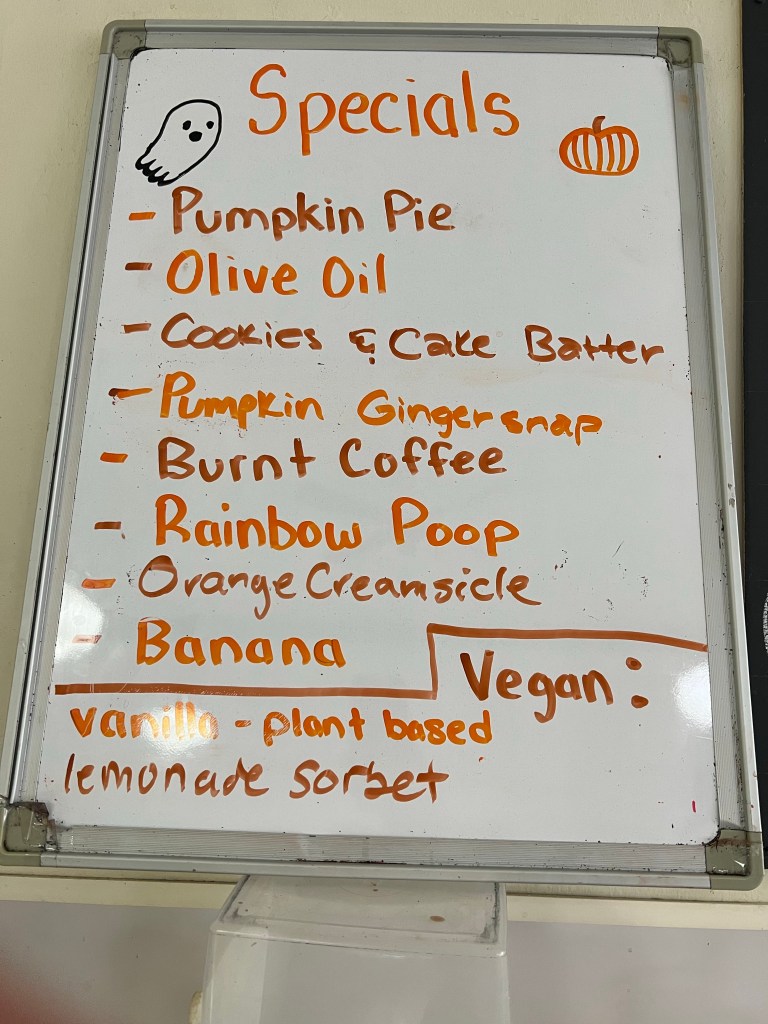 Specials
- Pumpkin Pie
- Olive Oil
- Cookies & Cake Batter
- Pumpkin Gingersnap
- Burnt Coffee
- Rainbow Poop
- Orange Creamsicle
- Banana
Vegan:
vanilla - plant based
lemonade sorbet